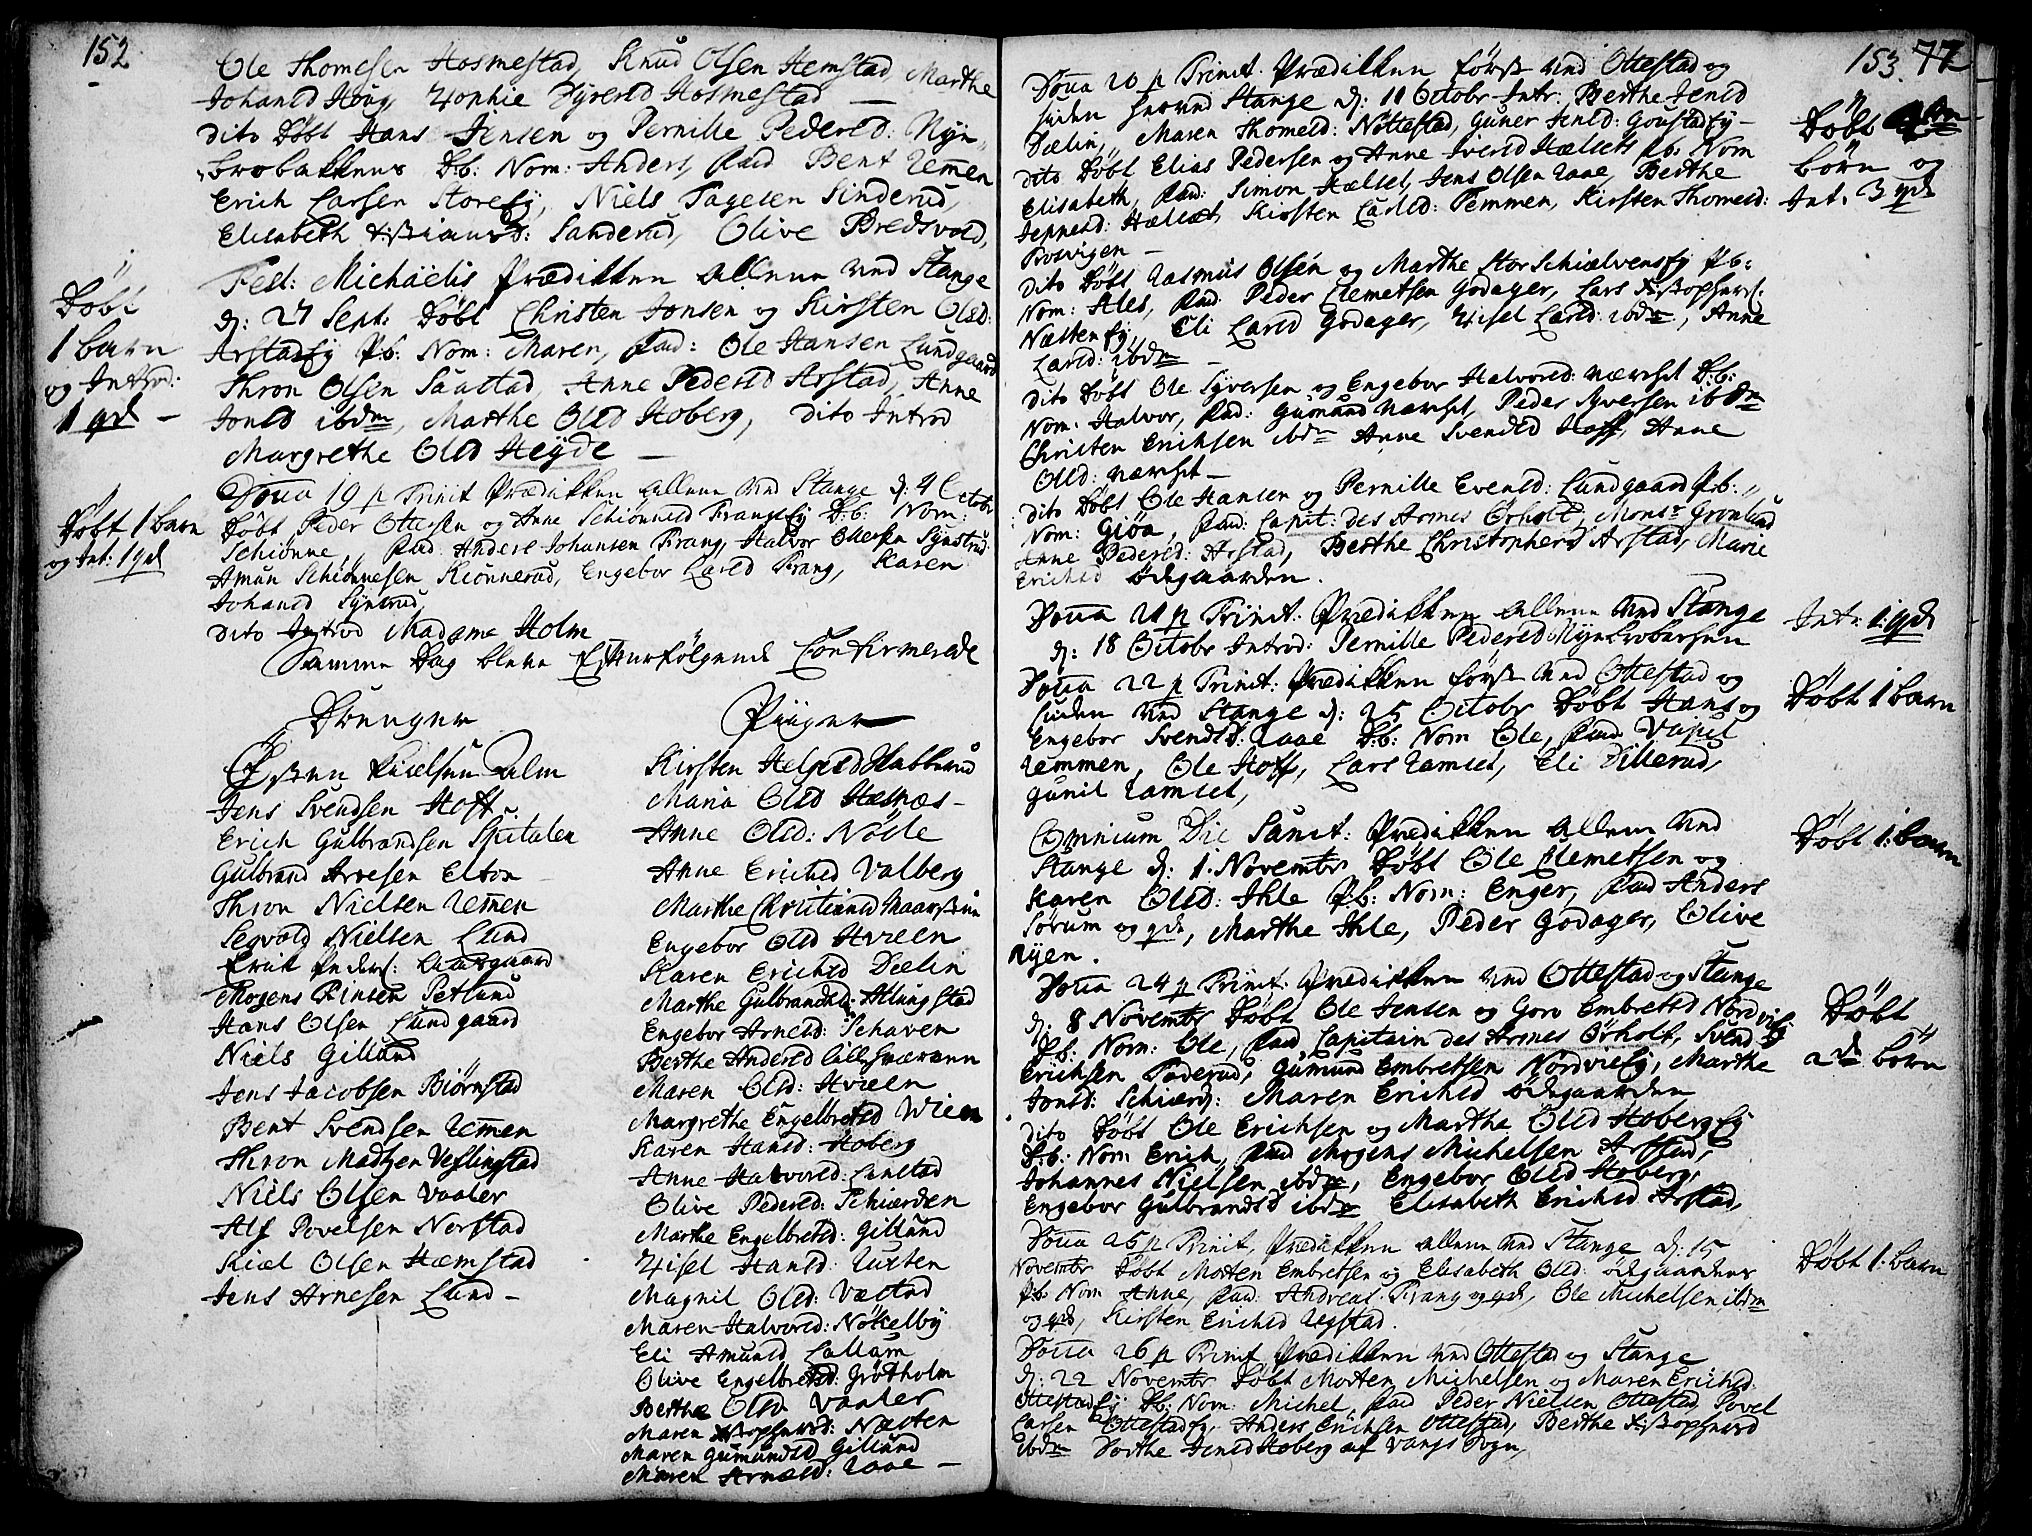 152
Ole Thomesen Hosmestad, Knud Olsen Hemstad Marthe
Johansd Houg, Zophie Syversd Hosmestad —
dito Döbt Hans Jensen og Pernille Pedersd: Nÿn-
broebakkens D.b: Nom: Anders, Fad: Bent Remen
Erich Larsen StoreEy, Niels Pagesen Sinderud,
Elisabeth Sanderud, Olive Bredsvold,
Fest: Michaëlis Prædikken allene ved Stange
d: 27 Sept: Döbt Christen Jonsen og Kirsten Olsd:
ArstadEy P.b: Nom: Maren, Fad: Ole Hansen Lundgaard
Thron Olsen Saustad, Anne Pedersd Arstad, Anne
Jonsd ibdm, Marthe Olsd Hoberg, dito Introd
Margrethe Olsd Heÿde —
Döbt
1 barn
og Introd:
1 qd —
Dom 19 p Trinit Prædikken allene ved Stange d: 4 Octobr
Döbt Peder Ottersen og Anne Schiönnesd FrangEy D.b: Nom:
Schiönne, Fad: Anders Johansen Frang, Halvor Ottersen Synstrud
Amun Schiönnesen Kiönnerud, Engebor Larsd Frang, Karen
Johansd Synsrud,
dito Introd Madame Holm
Döbt 1 barn
og Int: 1 qd
Samme Dag bleve Efterfölgende Confirmerede
Drenger
Östen Paaelsen Alm
Jens Svendsen Hoff
Erich Gulbrandsen Spitalen
Gulbrand Arvesen Elton
Thron Nielsen Remen
Segvold Nielsen Lund
Erik Peders: Lundgaard
Mogens Finsen Petlund
Hans Olsen Lundgaard
Niels Gillund
Jens Jacobsen Biörnstad
Bent Svendsen Remen
Thron Madtzen Veslingstad
Niels Olsen Vaaler
Alf Povelsen Norstad
Kiel Olsen Hæmstad
Jens Arnesen Lund —
Piiger
Kirsten Helgesd Habberud
Maria Olsd Hæsnæs —
Anne Olsd: Nösle
Anne Erichsd Valberg
Marthe Christiansd
Engebor Olsd Hveen
Karen Erichsd Dælin
Marthe Gulbrandsd: Alungstad
Engebor Arnesd: Schaven
Berthe Andersd
Maren Olsd: Hveen
Margrethe Engelbretsd Wien
Karen Hansd: Hoberg
Anne Halvorsd: Lunstad
Olive Pedersd: Schiærden
Marthe Engelbretsd: Gillund
Zisel Hansd: Rusten
Magnil Olsd: Væstad
Maren Halvorsd: Nökelbÿ
Eli Amundsd Lallum
Olive Engelbretsd: Grötholm
Berthe Olsd Vaaler
Maren Næsten
Maren Gumundsd Gillund
Maren Arnesd: Raae —
153. 77
Dom 20 p Trinit: Prædikken först ved Ottestad og
siden hos ved Stange d: 11 Octobr Intr: Berthe Jensd
Dælin, Maren Thomesd: Nöttestad, Guner Jensd: GoustadEy —
dito Döbt Elias Pedersen og Anne Iversd Hælsets P.b: Nom
Elisabeth, Fad: Simon Hælset, Jens Olsen Raae, Berthe
Jeppesd: Hælset, Kirsten Larsd: Femmen, Kirsten Thomesd:
Bosvigen —
Döbt 4re
börn og
Int. 3 qd
dito Döbt Rasmus Olsen og Marthe StorSchiælvensEy P.b:
Nom: Ales, Fad: Peder Clemetsen Godager, Lars
NæstenEy, Eli Larsd Godager, Zisel Larsd: ibdm, Anne
Larsd: ibdm —
dito Döbt Ole Syversen og Engebor Halvorsd: Nærset D.b:
Nom: Halvor, Fad: Gumund Nærset, Peder Syversen ibdm
Christen Erichsen ibdm Anne Svendsd Hoff, Anne
Olsd: Nærset —
dito Döbt Ole Hansen og Pernille Evensd: Lundgaard P.b:
Nom: Giöa, Fad: Capit: des Armes Örholt, Monsr Grönlund
Anne Pedersd: Arstad, Berthe Christophersd Arstad, Marie
Erichsd Ödegaarden.
Dom 21 p Trinit: Prædikken allene ved Stange
d: 18 Octobr Introd: Pernille Pedersd
Int: 1 qd
Dom 22 p Trinit: Prædikken först ved Ottestad og
siden ved Stange d: 25 Octobr Döbt Hans og
Engebor Svendsd: Raae D.b: Nom Ole, Fad:
Remmen, Ole Hoff, Lars Ramset, Eli Dillerud,
Gunil Ramset,
Döbt 1 barn
Omnium Die Sanct: Prædikken allene ved
Stange d: 1. Novembr Döbt Ole Clemetsen og
Karen Olsd: Ihle P.b: Nom: Enger, Fad Anders
Sörum og qd, Marthe Ihle, Peder Godager, Olive
Ryen.
Döbt 1. barn
Dom 24 p Trinit: Prædikken ved Ottestad og Stange
d: 8 Novembr Döbt Ole Jensen og Goro Embretsd NordviEy
D.b: Nom: Ole, Fad Capitain des Armes Örholt, Svend
Erichsen Paderud, Gumund Embretsen NordviEy, Marthe
Jonsd: Schiærd: Maren Erichsd Ödegaarden
dito Döbt Ole Erichsen og Marthe Olsd HobergEy
D.b: Nom: Erich, Fad Mogens Michelsen Arstad,
Johannes Nielsen ibdm, Engebor Olsd Hoberg,
Engebor Gulbrandsd ibdm Elisabeth Erichsd Arstad,
Döbt
2de börn
Dom 25 p Trinit, Prædikken allene ved Stange d: 15
Novembr Döbt Morten Embretsen og Elisabeth Olsd: Ödegaardens
P.b: Nom Anne, Fad: Andreas Frang og qd, Ole Michelsen ibdm
og qd, Kirsten Erichsd Ustad.
Döbt 1. barn
Dom 26 p Trinit Prædikken ved Ottestad og Stange
d: 22 Novembr Döbt Morten Michelsen og Maren Erichsd:
OttestadEy D.b: Nom: Michel, Fad Peder Nielsen Ottestad, Povel
Larsen OttestadEy, Anders Erichsen Ottestad, Berthe
ibdm Dorthe Jensd Hoberg af Vangs Sogn,